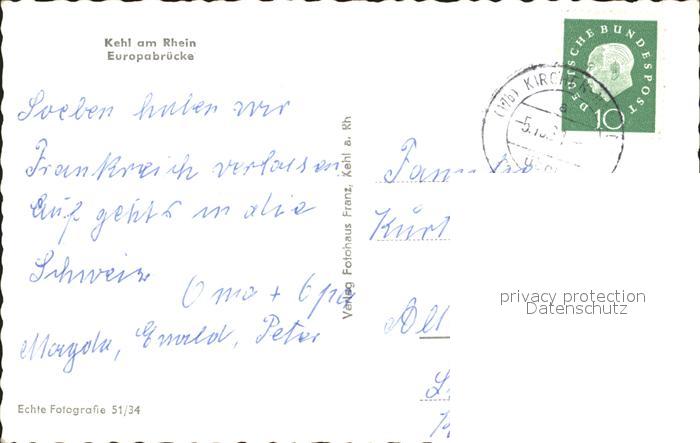 Kehl am Rhein
Europabrücke
Soeben haben wir
Frankreich verlassen
Auf geht's in die
Schweiz
Oma + Opa
Magda, Ewald, Peter
Echte Fotografie 51/34
Verlag Fotohaus Franz, Kehl a. Rh
DEUTSCHE BUNDESPOST
10
(17b) KIRCHEN
a
Kurt
privacy protection
Datenschutz